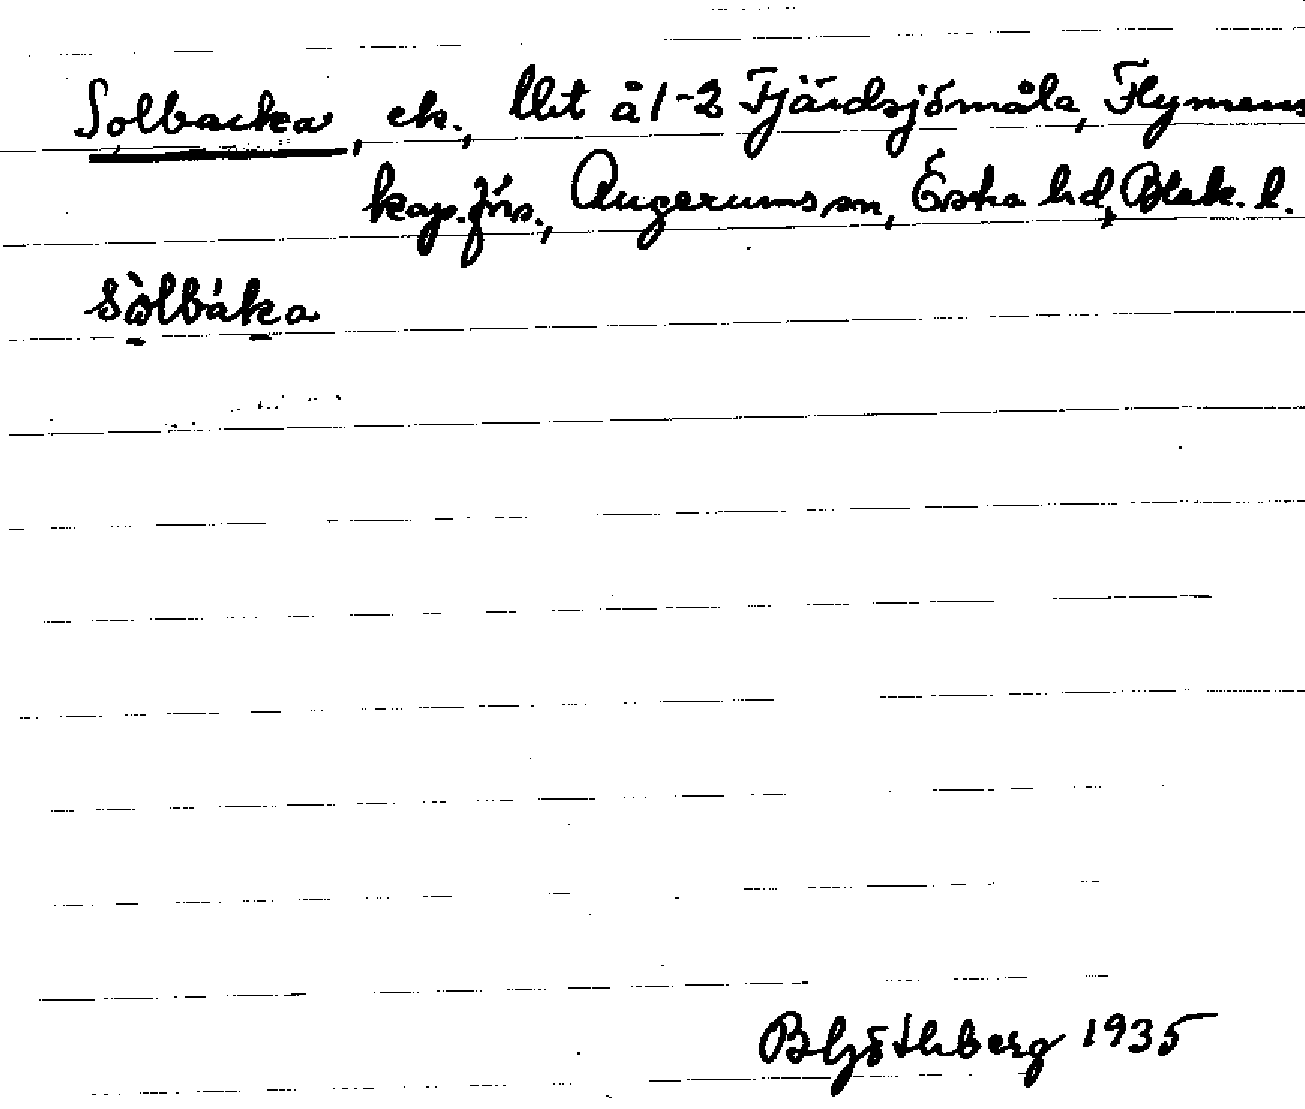 Solbacka, ek., Utit å 1-2 Fjärdsjömåla, Flymens
kap.förs., Augerums sn, Östra hd, Blek. l.
sòlbáka
B Göthberg 1935